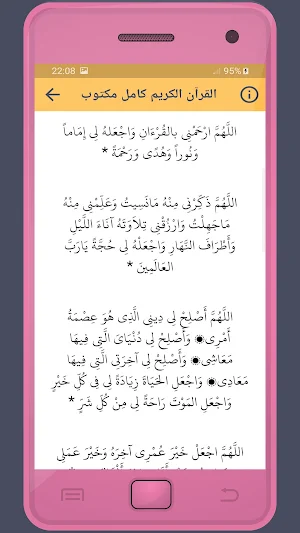 22:08 95%
القرآن الكريم كامل مكتوب
اللَّهُمَّ ارْحَمْنِي بالقُرْءَانِ وَاجْعَلهُ لِي إِمَاماً
وَنُوراً وَهُدًى وَرَحْمَةً *
اللَّهُمَّ ذَكِّرْنِي مِنْهُ مَانَسِيتُ وَعَلِّمْنِي مِنْهُ
مَاجَهِلْتُ وَارْزُقْنِي تِلاَوَتَهُ آنَاءَ اللَّيْلِ
وَأَطْرَافَ النَّهَارِ وَاجْعَلْهُ لِي حُجَّةً يَارَبَّ
العَالَمِينَ *
اللَّهُمَّ أَصْلِحْ لِي دِينِي الَّذِي هُوَ عِصْمَةُ
أَمْرِي۞ وَأَصْلِحْ لِي دُنْيَايَ الَّتِي فِيهَا
مَعَاشِي۞ وَأَصْلِحْ لِي آخِرَتِي الَّتِي فِيهَا
مَعَادِي۞ وَاجْعَلِ الحَيَاةَ زِيَادَةً لِي فِي كُلِّ خَيْرٍ
وَاجْعَلِ المَوْتَ رَاحَةً لِي مِنْ كُلِّ شَرٍّ *
اللَّهُمَّ اجْعَلْ خَيْرَ عُمْرِي آخِرَهُ وَخَيْرَ عَمَلِي